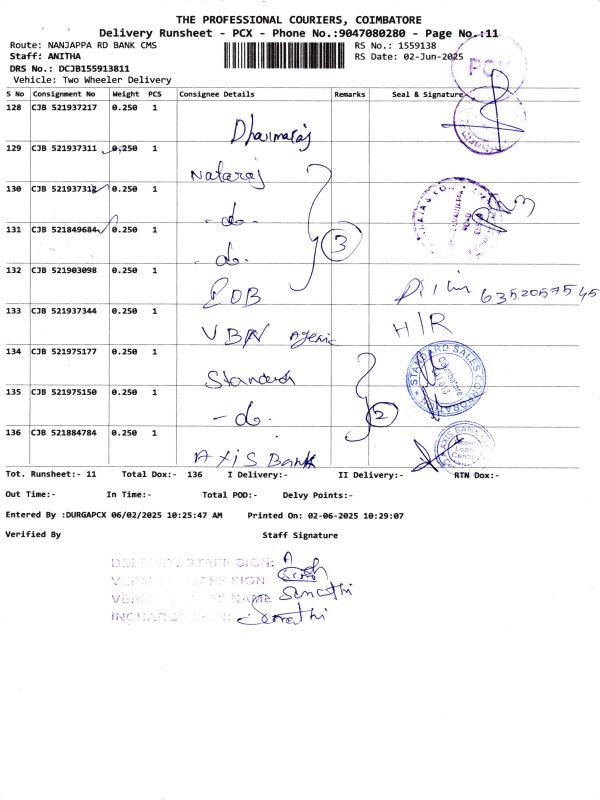 THE PROFESSIONAL COURIERS, COIMBATORE
Delivery Runsheet - PCX - Phone No.:9047080280 - Page No.:11
Route: NANJAPPA RD BANK CMS RS No.: 1559138
Staff: ANITHA RS Date: 02-Jun-2025
DRS No.: DCJB155913811
Vehicle: Two Wheeler Delivery
PCX
S No Consignment No Weight PCS Consignee Details Remarks Seal & Signature
128 CJB 521937217 0.250 1
Dharmaraj
129 CJB 521937311 0.250 1
Nataraj
130 CJB 521937312 0.250 1
-do-
131 CJB 521849684 0.250 1
-do-
3
132 CJB 521903098 0.250 1
6352057545
133 CJB 521937344 0.250 1
VBN H/R
134 CJB 521975177 0.250 1
Standard
STANDARD SALES CORPORATION
Coimbatore
135 CJB 521975150 0.250 1
-do-
2
136 CJB 521884784 0.250 1
AXIS Bank
AXIS BANK
Tot. Runsheet:- 11 Total Dox:- 136 I Delivery:- II Delivery:- RTN Dox:-
Out Time:- In Time:- Total POD:- Delvy Points:-
Entered By :DURGAPCX 06/02/2025 10:25:47 AM Printed On: 02-06-2025 10:29:07
Verified By Staff Signature
STAFF SIGN:
SIGN:
NAME